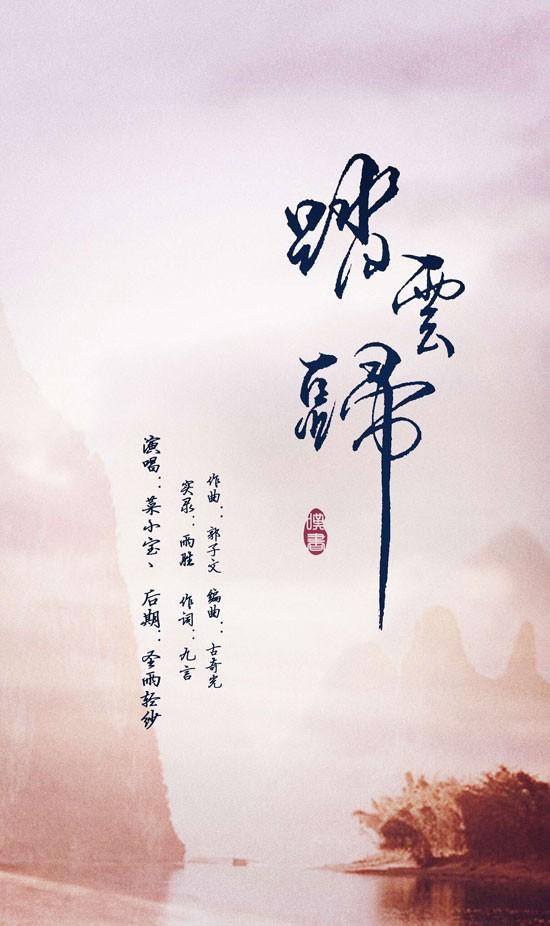 踏雲歸
嘆書
作曲：郭子文 编曲：古奇光
实录：雨胜 作词：九言
演唱：菜小宝、后期：圣雨轻纱